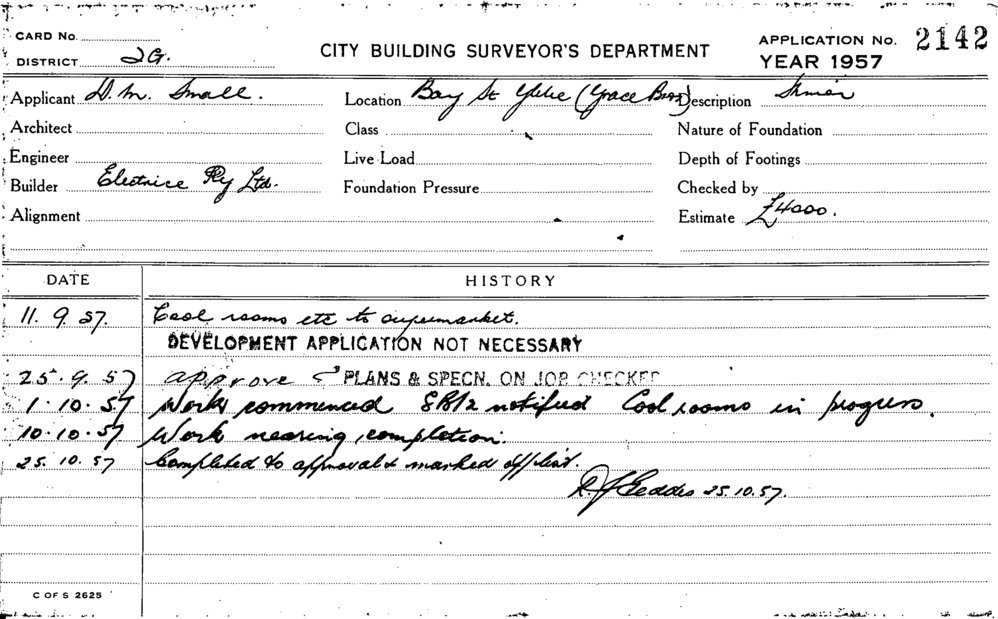 CARD No.
DISTRICT 2G.
CITY BUILDING SURVEYOR'S DEPARTMENT
APPLICATION No. 2142
YEAR 1957
Applicant D. M. Small.
Location Bay St (Grace Bros)
Description
Architect
Class
Nature of Foundation
Engineer
Live Load
Depth of Footings
Builder Electrice Pty Ltd.
Foundation Pressure
Checked by
Alignment
Estimate £4000.
DATE HISTORY
11. 9. 57. Cool rooms etc to supermarket.
DEVELOPMENT APPLICATION NOT NECESSARY
25. 9. 57 approve PLANS & SPECN. ON JOB CHECKED
1. 10. 57 Work commenced notified Cool rooms in progress.
10. 10. 57 Work nearing completion.
25. 10. 57 Completed to approval & marked off plan.
Geddes 25.10.57.
C OF S 2625